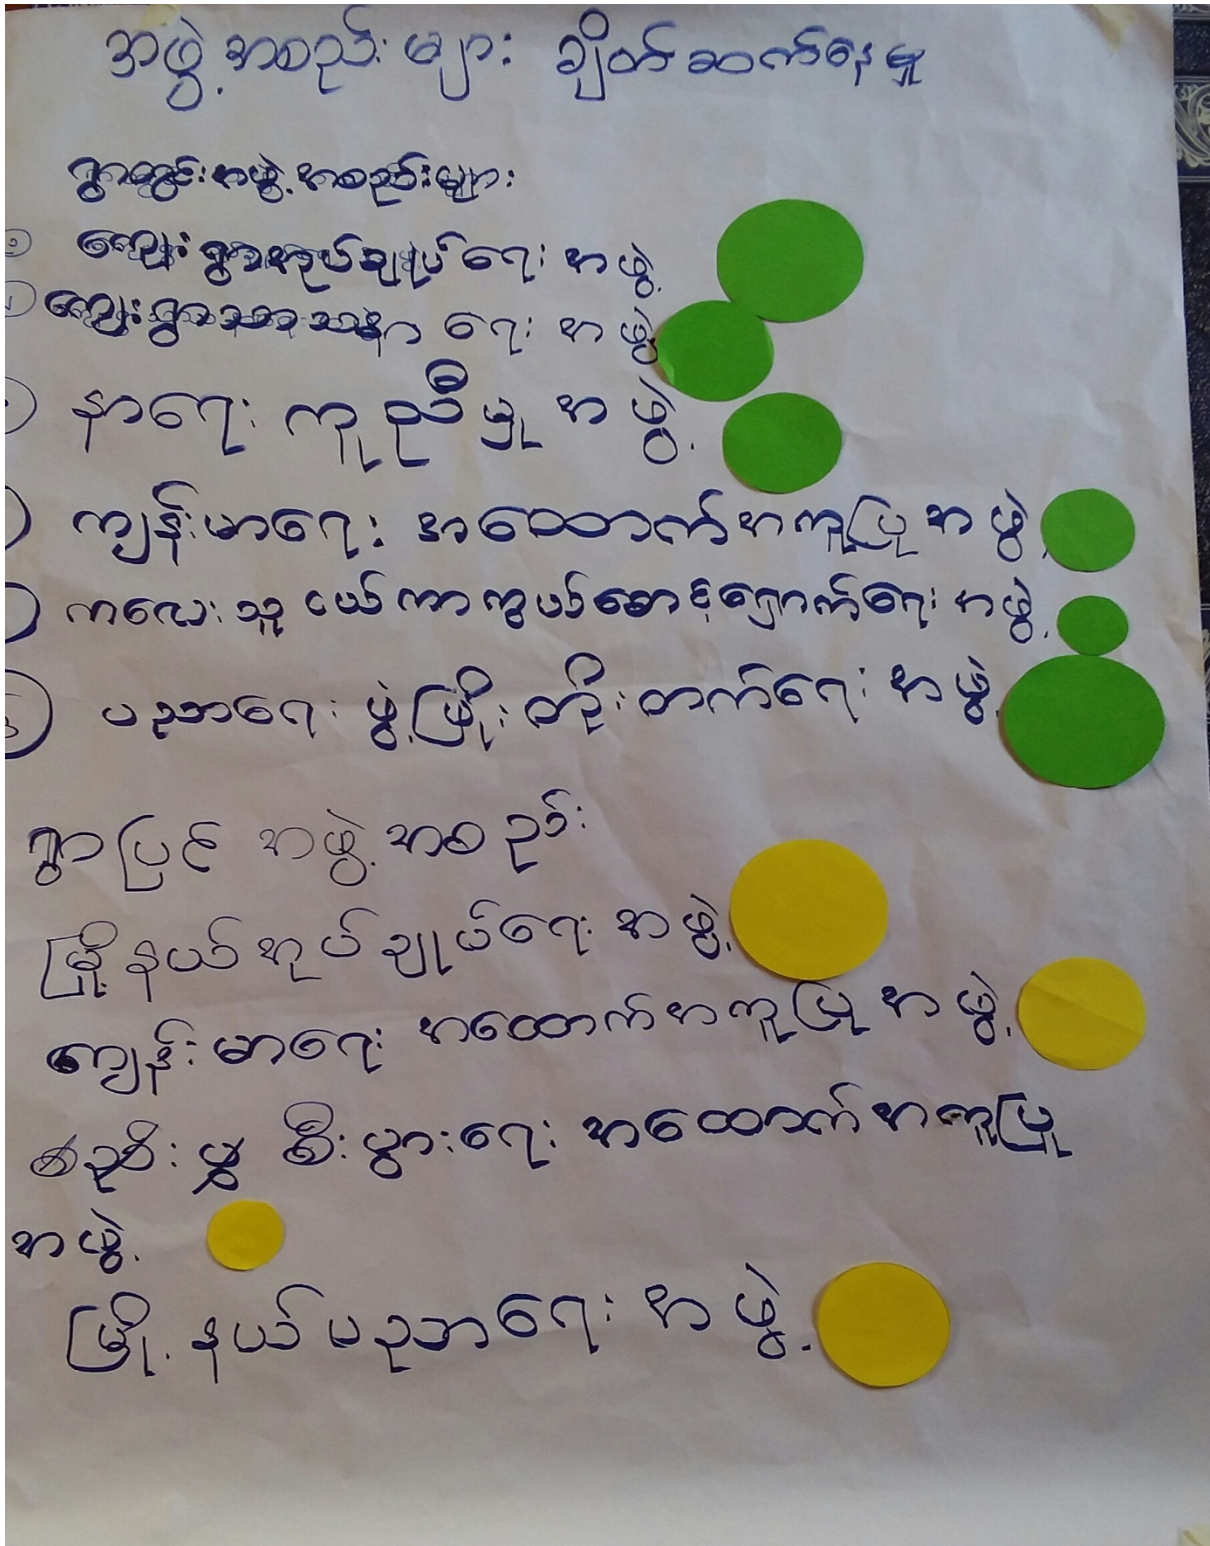 အဖွဲ့အစည်းများ ချိတ်ဆက်နေမှု
ရွာတွင်းအဖွဲ့အစည်းများ
ကျေးရွာအုပ်ချုပ်ရေးအဖွဲ့
ကျေးရွာသာသနာရေးအဖွဲ့
နာရေးကူညီမှုအဖွဲ့
ကျန်းမာရေးအထောက်အကူပြုအဖွဲ့
ကလေးသူငယ်ကာကွယ်စောင့်ရှောက်ရေးအဖွဲ့
ပညာရေးဖွံ့ဖြိုးတိုးတက်ရေးအဖွဲ့
ရွာပြင်အဖွဲ့အစည်း
မြို့နယ်အုပ်ချုပ်ရေးအဖွဲ့
ကျန်းမာရေးအထောက်အကူပြုအဖွဲ့
စီးပွားရေးအထောက်အကူပြု
အဖွဲ့
မြို့နယ်ပညာရေးအဖွဲ့